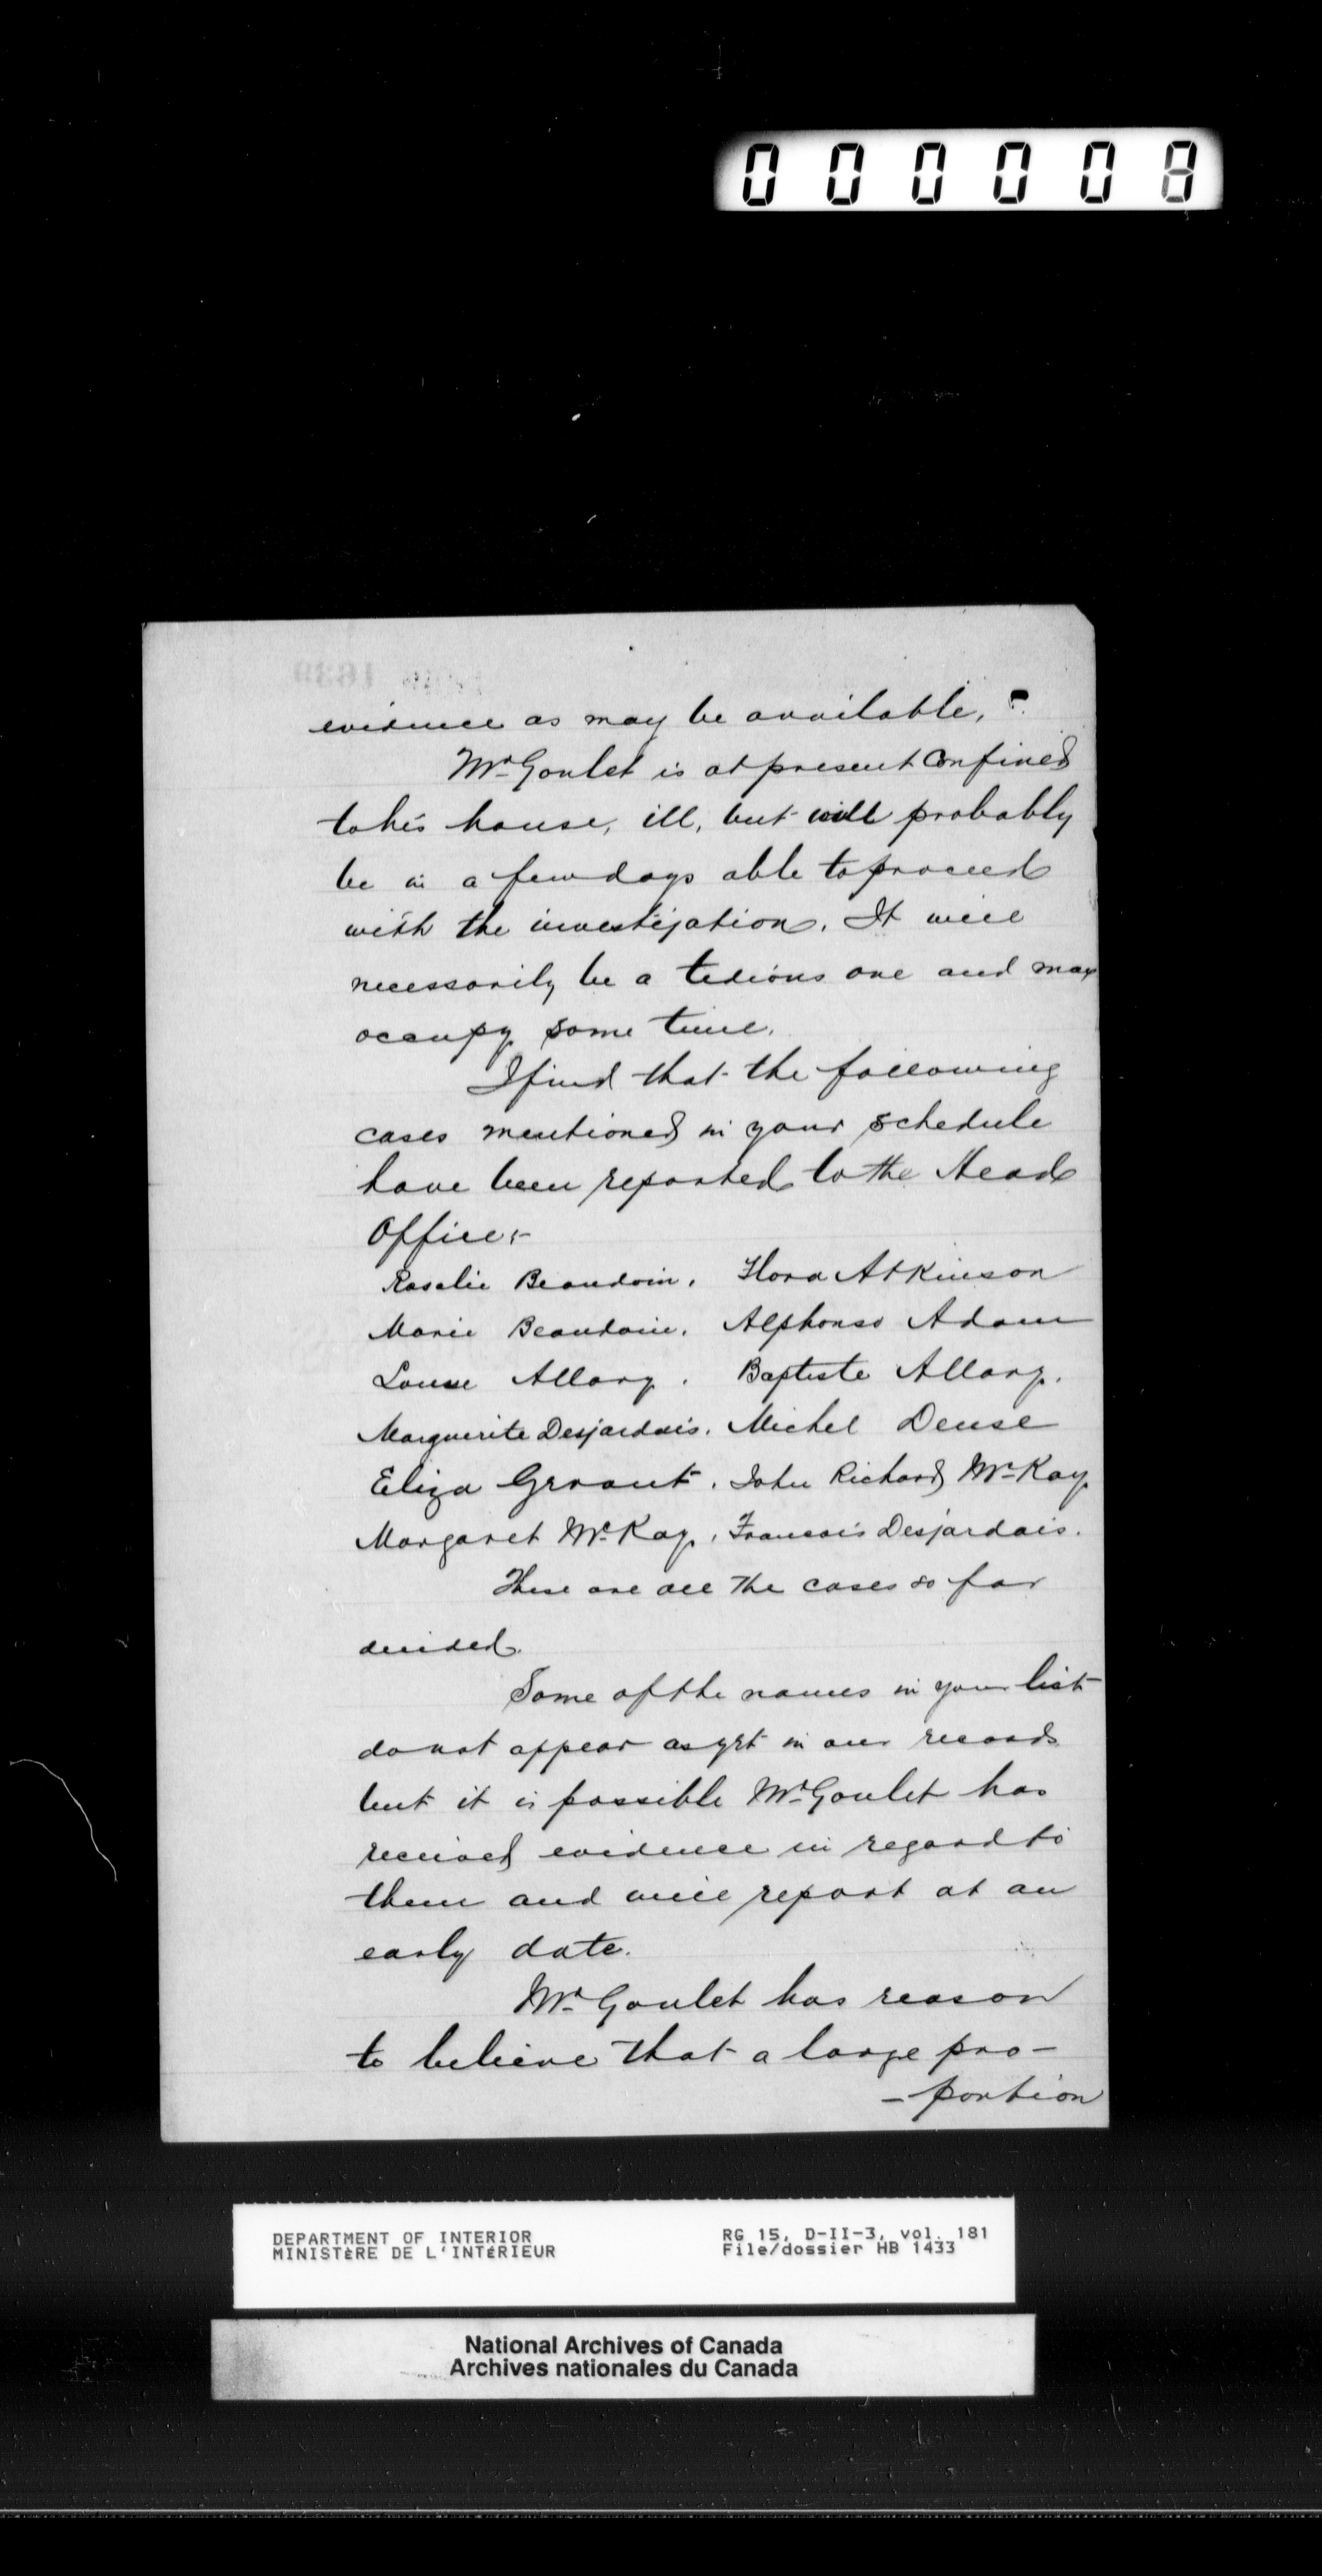 000008
evidence as may be available.
Mr Goulet is at present confined
to his house, ill, but will probably
be in a few days able to proceed
with the investigation. It will
necessarily be a tedious one and may
occupy some time.
I find that the following
cases mentioned in your schedule
have been reported to the Head
Office:-
Rosalie Beaudoin. Flora Atkinson
Marie Beaudoin. Alphonso Adam
Louise Allary. Baptiste Allary.
Marguerite Desjardais. Michel Deuse
Eliza Grant. John Richard McKay
Margaret McKay. Francois Desjardais.
These are all the cases so far
decided.
Some of the names in your list
do not appear as yet in our records
but it is possible Mr Goulet has
received evidence in regard to
them and will report at an
early date.
Mr Goulet has reason
to believe that a large pro-
-portion
DEPARTMENT OF INTERIOR RG 15, D-II-3, vol. 181
MINISTÈRE DE L'INTÉRIEUR File/dossier HB 1433
National Archives of Canada
Archives nationales du Canada